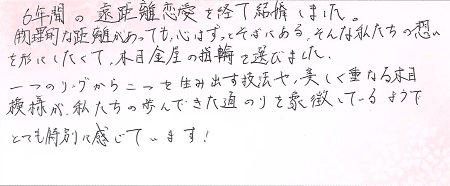 6年間の遠距離恋愛を経て結婚しました。
物理的な距離があっても、心はずっとそばにある、そんな私たちの想い
を形にしたくて、木目金屋の指輪を選びました。
一つのリングから二つを生み出す技法や、美しく重なる木目
模様が、私たちの歩んできた道のりを象徴しているようで
とても特別に感じています!